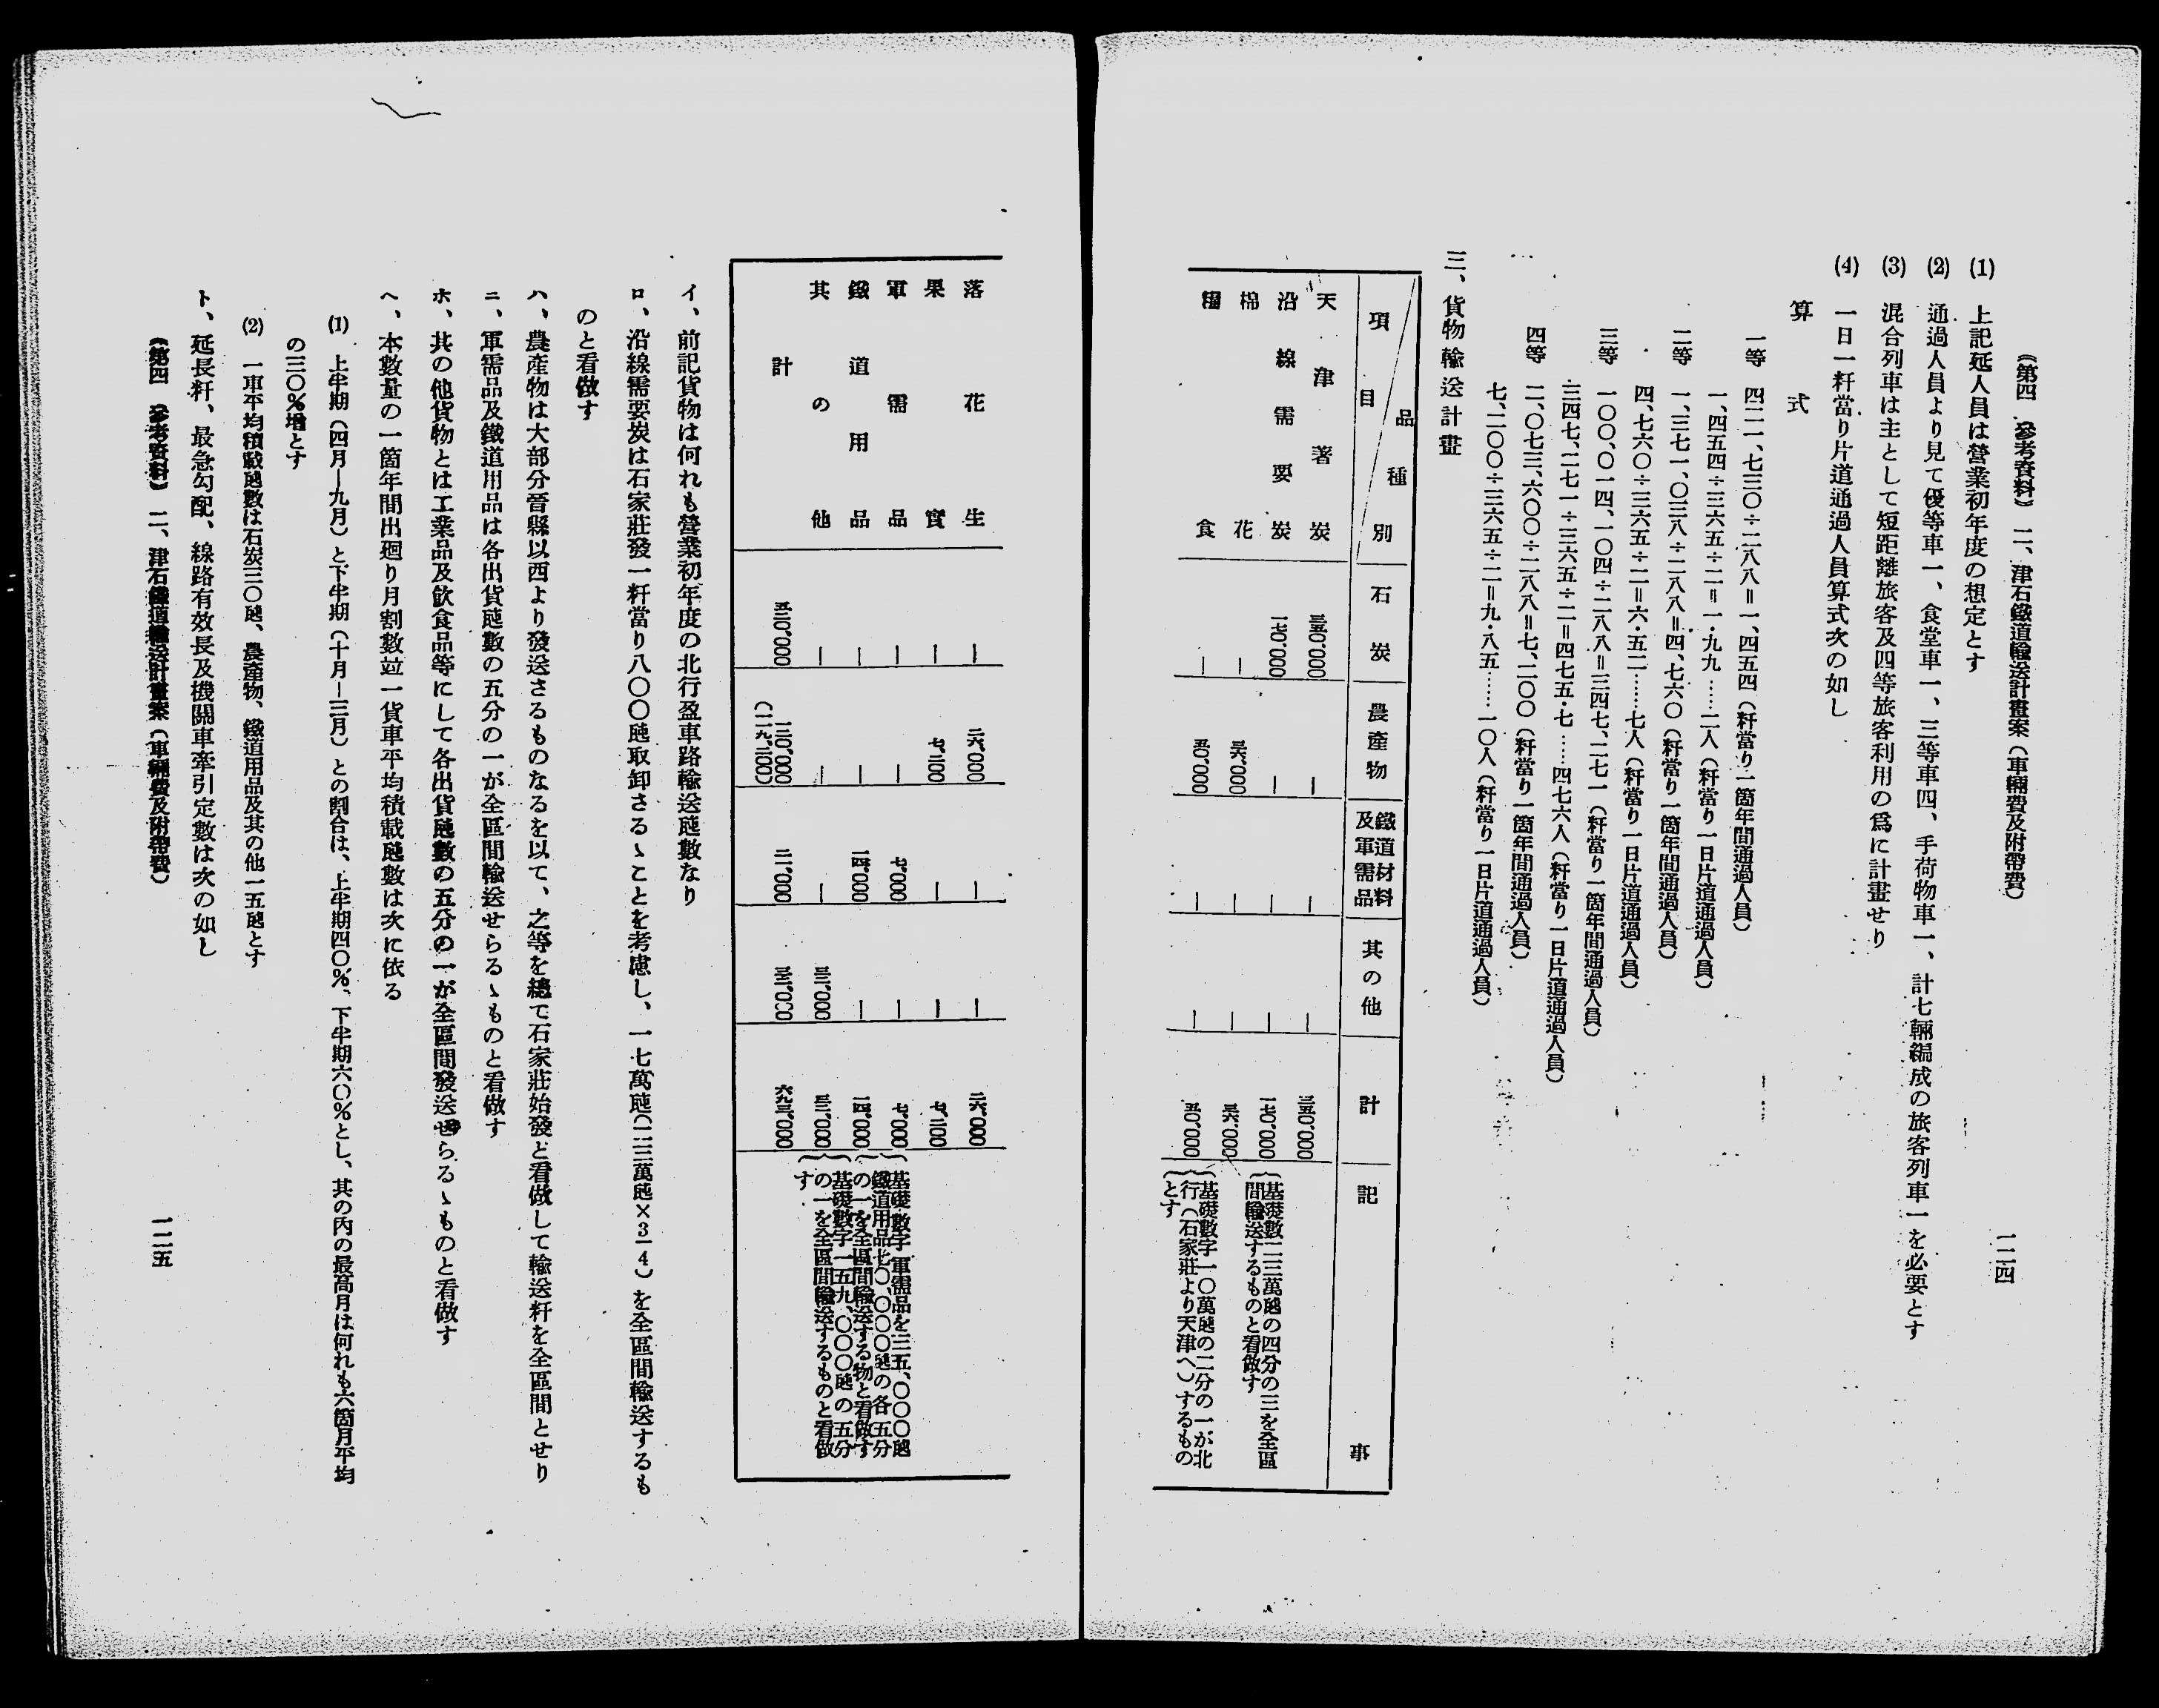 (第四 參考資料) 二、津石鐵道輸送計畫案(車輛費及附帶費)
一二四
(1) 上記延人員は營業初年度の想定とす
(2) 通過人員より見て優等車一、食堂車一、三等車四、手荷物車一、計七輛編成の旅客列車一を必要とす
(3) 混合列車は主として短距離旅客及四等旅客利用の爲に計畫せり
(4) 一日一粁當り片道通過人員算式次の如し
算式
一等 四二一、七三〇÷二八八=一、四五四(粁當り一箇年間通過人員)
一、四五四÷三六五÷二=一・九九……二人(粁當り一日片道通過人員)
二等 一、三七一、〇三八÷二八八=四、七六〇(粁當り一箇年間通過人員)
四、七六〇÷三六五÷二=六・五二……七人(粁當り一日片道通過人員)
三等 一〇〇、〇一四、一〇四÷二八八=三四七、二七一(粁當り一箇年間通過人員)
三四七、二七一÷三六五÷二=四七五・七……四七六人(粁當り一日片道通過人員)
四等 二、〇七三、六〇〇÷二八八=七、二〇〇(粁當り一箇年間通過人員)
七、二〇〇÷三六五÷二=九・八五……一〇人(粁當り一日片道通過人員)
三、貨物輸送計畫
項目 品種別 石炭 農產物 鐵道材料及軍需品 其の他 計 記事
天津著炭 三五〇、〇〇〇 — — — 三五〇、〇〇〇
沿線需要炭 一七〇、〇〇〇 — — — 一七〇、〇〇〇 基礎數二三萬瓲の四分の三を全區間輸送するものと看做す
棉花 — 三六、〇〇〇 — — 三六、〇〇〇
糧食 — 五〇、〇〇〇 — — 五〇、〇〇〇 基礎數字一〇萬瓲の二分の一が北行(石家莊より天津へ)するものとす
落花生 — 二六、〇〇〇 — — 二六、〇〇〇
果實 — 七、二〇〇 — — 七、二〇〇
軍需品 — — 七、〇〇〇 — 七、〇〇〇 基礎數字軍需品を三五、〇〇〇瓲
鐵道用品 — — 一四、〇〇〇 — 一四、〇〇〇 鐵道用品七〇、〇〇〇瓲の各五分の一を全區間輸送する物と看做す
其の他 — — — 三二、〇〇〇 三二、〇〇〇 基礎數字一五九、〇〇〇瓲の五分の一を全區間輸送するものと看做す
計 五二〇、〇〇〇 一二〇、〇〇〇(一一九、二〇〇) 二一、〇〇〇 三二、〇〇〇 六九三、〇〇〇
イ、前記貨物は何れも營業初年度の北行盈車路輸送瓲數なり
ロ、沿線需要炭は石家莊發一粁當り八〇〇瓲取卸さるゝことを考慮し、一七萬瓲(二三萬瓲×3/4)を全區間輸送するも
のと看做す
ハ、農產物は大部分晉縣以西より發送さるものなるを以て、之等を總て石家莊始發と看做して輸送粁を全區間とせり
ニ、軍需品及鐵道用品は各出貨瓲數の五分の一が全區間輸送せらるゝものと看做す
ホ、其の他貨物とは工業品及飮食品等にして各出貨瓲數の五分の一が全區間發送せらるゝものと看做す
ヘ、本數量の一箇年間出廻り月割數竝一貨車平均積載瓲數は次に依る
(1) 上半期(四月—九月)と下半期(十月—三月)との割合は、上半期四〇%、下半期六〇%とし、其の內の最高月は何れも六箇月平均
の三〇%增とす
(2) 一車平均積載瓲數は石炭三〇瓲、農產物、鐵道用品及其の他一五瓲とす
ト、延長粁、最急勾配、線路有效長及機關車牽引定數は次の如し
(第四 參考資料) 二、津石鐵道輸送計畫案(車輛費及附帶費)
一二五